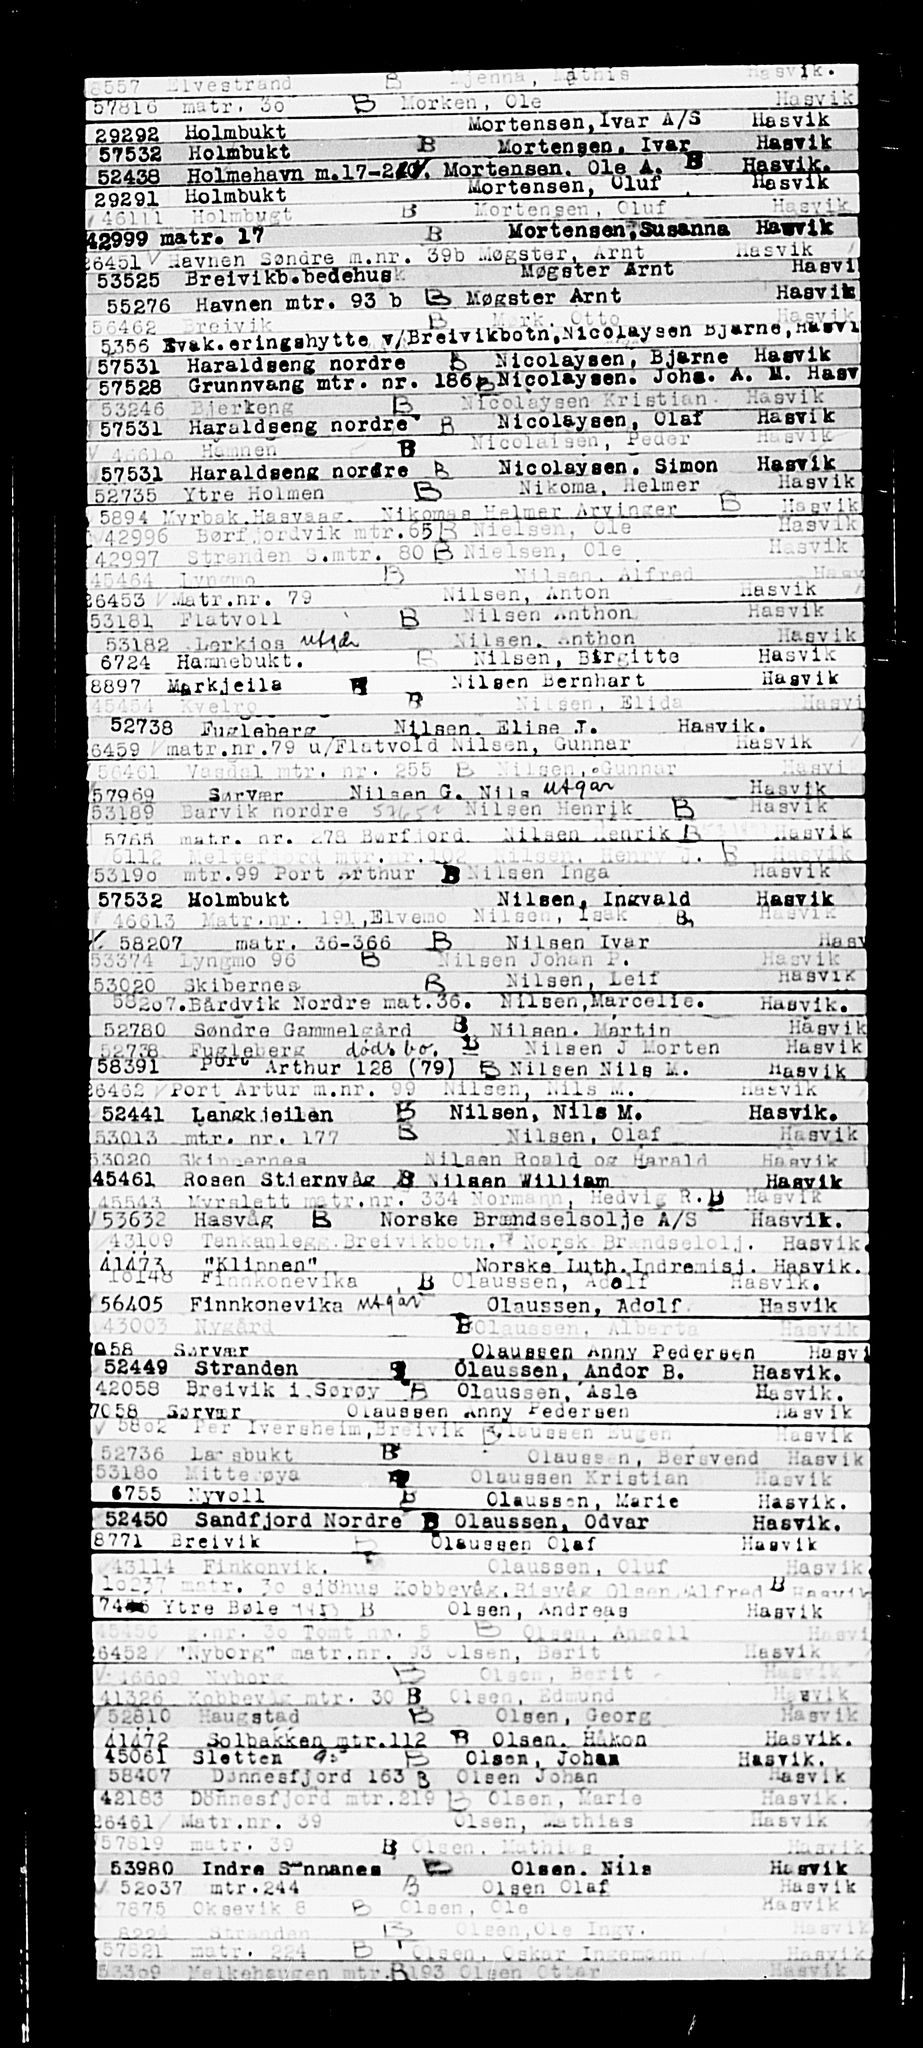 8557 Elvestrand B Mathis Hasvik.
57816 matr. 30 B Morken, Ole Hasvik
29292 Holmbukt Mortensen, Ivar A/S Hasvik
57532 Holmbukt B Mortensen, Ivar Hasvik
52438 Holmehavn Mortensen. Ole A. B Hasvik.
29291 Holmbukt Mortensen, Oluf Hasvik
46111 Holmbugt B Mortensen, Oluf Hasvik
42999 matr. 17 B Mortensen, Susanna Hasvik
26451 Havnen Søndre m.nr. 39b Møgster, Arnt Hasvik
53525 Breivikb.bedehus Møgster Arnt Hasvi
55276 Havnen mtr. 93 b B Møgster Arnt Hasvik
56462 Breivik B Mørk Otto Hasvik
5356 Evak.eringshytte v/Breivikbotn, Nicolaysen Bjarne, Hasvi
57531 Haraldseng nordre B Nicolaysen, Bjarne Hasvik
57528 Grunnvang mtr. nr. 186 B Nicolaysen. Johs. A. M. Hasv
53246 Bjerkeng B Nicolaysen Kristian Hasvik
57531 Haraldseng nordre B Nicolaysen, Olaf Hasvik
46610 Hamnen B Nicolaisen, Peder Hasvik
57531 Haraldseng nordre B Nicolaysen. Simon Hasvik
52735 Ytre Holmen B Nikoma, Helmer Hasvik
5894 Myrbak, Hasvaag. Nikomas Helmer Arvinger B Hasvik
42996 Børfjordvik mtr.65 B Nielsen, Ole Hasvik
42997 Stranden S.mtr. 80 B Nielsen, Ole Hasvik
45464 Lyngmo B Nilsen. Alfred Hasv
26453 Matr.nr. 79 Nilsen, Anton Hasvik
53181 Flatvoll B Nilsen Anthon Hasvik
53182 Lerkjos utgår Nilsen. Anthon Hasvik
6724 Hamnebukt. B Nilsen, Birgitte Hasvik
8897 Markjeila B Nilsen Bernhart Hasvik
45454 Kvelro B Nilsen, Elida Hasvi
52738 Fugleberg Nilsen. Elise J. Hasvik.
6459 matr.nr.79 u/Flatvold Nilsen, Gunnar Hasvik
56461 Vasdal mtr. nr. 255 B Nilsen, Gunnar Hasvi
57969 Sørvær Nilsen G. Nils utgår Hasvik
53189 Barvik nordre Nilsen Henrik B Hasvik
5765 matr. nr. 278 Børfjord Nilsen Henrik B Hasvik
6112 Meltefjord mtr.nr.102 Nilsen, Henry J. B Hasvik
53190 mtr.99 Port Arthur B Nilsen Inga Hasvik
57532 Holmbukt Nilsen, Ingvald Hasvik
46613 Matr.nr. 191, Elvemo Nilsen, Isak B Hasvik
58207 matr. 36-366 B Nilsen Ivar Hasv
53374 Lyngmo 96 B Nilsen Johan P. Hasvik
53020 Skibernes B Nilsen, Leif Hasvik
58207. Bårdvik Nordre mat.36. Nilsen, Marcelie. Hasvik.
52780 Søndre Gammelgård B Nilsen. Martin Hasvik
52738 Fugleberg dødsbo. B Nilsen J Morten Hasvik
58391 Port Arthur 128 (79) B Nilsen Nils M. Hasvik
26462 Port Artur m.nr. 99 Nilsen, Nils M. Hasvik
52441 Langkjeilen B Nilsen, Nils M. Hasvik.
53013 mtr. nr. 177 B Nilsen, Olaf Hasvik
53020 Nilsen Roald og Harald Hasvik
45461 Rosen Stiernvåg B Nilsen William Hasvik
45543 Myrslett matr.nr. 334 Normann, Hedvig R. B Hasvik
53632 Hasvåg B Norske Brændselsolje A/S Hasvik.
43109 Tankanlegg, Breivikbotn. Norsk Brændselolj. Hasvik.
41473 "Klippen" Norske Luth.Indremisj. Hasvik.
18148 Finnkonevika B Olaussen, Adolf Hasvik.
56405 Finnkonevika utgår Olaussen, Adolf Hasvik
43003 Nygård B Olaussen, Alberta Hasvik
7058 Sørvær Olaussen Anny Pedersen Hasvi
52449 Stranden B Olaussen, Andor B. Hasvik.
42058 Breivik i Sørøy B Olaussen, Asle Hasvik.
7058 Sørvær Olaussen Anny Pedersen Hasvik
5802 Per Iversheim, Breivik B Olaussen Eugen Hasvik
52736 Larsbukt B Olaussen, Bersvend Hasvik
53180 Mitterøya B Olaussen Kristian Hasvik
6755 Nyvoll B Olaussen, Marie Hasvik.
52450 Sandfjord Nordre B Olaussen, Odvar Hasvik.
8771 Breivik B Olaussen Olaf Hasvik
43114 Finkonvik. Olaussen, Oluf Hasvik
10237 matr. 30 sjöhus Kobbevåg. Risvåg Olsen, Alfred B Hasvik
Ytre Bøle B Olsen, Andreas Hasvik
45456 g.nr. 30 Tomt nr. 5 B Olsen, Angell Hasvi
26452 "Nyborg" matr.nr. 93 Olsen, Berit Hasvik
46609 Nyborg B Olsen, Berit Hasvik
41326 Kobbevåg mtr. 30 B Olsen, Edmund Hasvik
52810 Haugstad B Olsen, Georg Hasvik
41472 Solbakken mtr.112 B Olsen. Håkon Hasvik.
45061 Sletten 95 B Olsen, Johan Hasvik.
58407 Dønnesfjord 163 B Olsen Johan Hasvik
42183 Dönnesfjord mtr.219 B Olsen, Marie Hasvik.
26461 Matr.nr. 39 Olsen, Mathias Hasvik
57819 matr. 39 B Olsen. Mathias Hasvik
53980 Indre Sønnanes B Olsen. Nils Hasvik
52037 mtr.244 B Olsen Olaf Hasvik
7875 Oksevik 8 B Olsen, Ole Hasvik
Stranden B Olsen, Ole Ingv. Hasvik
57821 matr. 224 B Olsen, Oskar Ingemann Hasvik
53309 Melkehaugen mtr. B 193 Olsen Ottar Hasvik